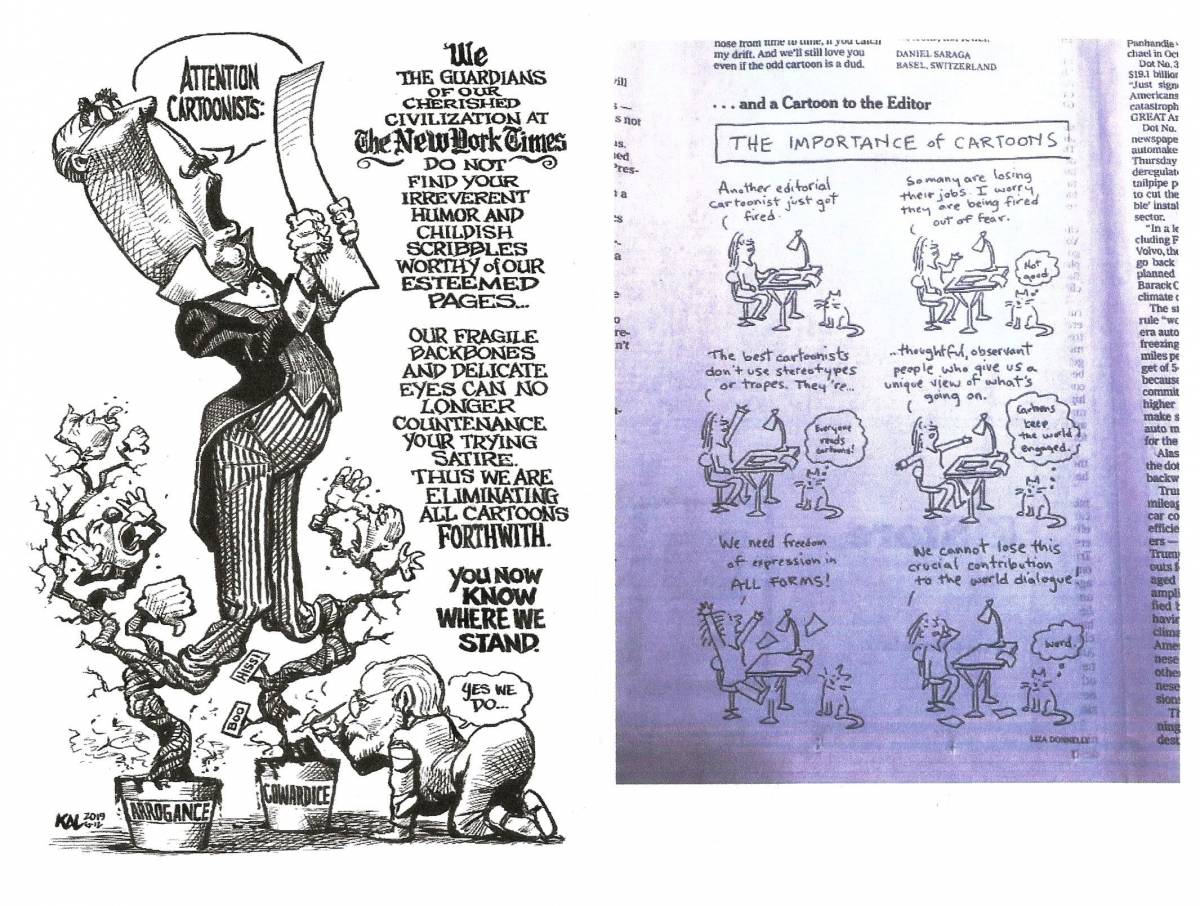 ATTENTION
CARTOONISTS:
We
THE GUARDIANS
OF OUR
CHERISHED
CIVILIZATION AT
The New York Times
DO NOT
FIND YOUR
IRREVERENT
HUMOR AND
CHILDISH
SCRIBBLES
WORTHY of OUR
ESTEEMED
PAGES...
OUR FRAGILE
BACKBONES
AND DELICATE
EYES CAN NO
LONGER
COUNTENANCE
YOUR TRYING
SATIRE.
THUS WE ARE
ELIMINATING
ALL CARTOONS
FORTHWITH.
YOU NOW
KNOW
WHERE WE
STAND.
HISS
BOO
YES WE
DO...
ARROGANCE
COWARDICE
KAL 2019
6-12
nose from time to time, if you catch
my drift. And we'll still love you
even if the odd cartoon is a dud.
DANIEL SARAGA
BASEL, SWITZERLAND
. . . and a Cartoon to the Editor
THE IMPORTANCE of CARTOONS
Another editorial
cartoonist just got
fired.
So many are losing
their jobs. I worry
they are being fired
out of fear.
Not
good.
The best cartoonists
don't use stereotypes
or tropes. They're...
Everyone
reads
cartoons!
..thoughtful, observant
people who give us a
unique view of what's
going on.
Cartoons
keep
the world
engaged.
We need freedom
of expression in
ALL FORMS!
We cannot lose this
crucial contribution
to the world dialogue!
Word.
LIZA DONNELLY
Panhandle
chael in Oct
Dot No. 3
$19.1 billion
"Just sign
Americans
catastroph
GREAT Am
Dot No.
newspape
automake
Thursday
deregulat
tailpipe p
to cut the
ble' instal
sector.
"In a le
cluding F
Volvo, the
go back
planned
Barack O
climate c
The st
rule "wo
era auto
freezing
miles pe
get of 5
because
commit
higher
make s
auto m
for the
Alas
the dot
backw
Trum
mileag
car co
efficie
ers —
Trump
outs f
aged
ampli
fied b
havin
clima
Ame
nese
othe
nese
sions
Th
ning
dest